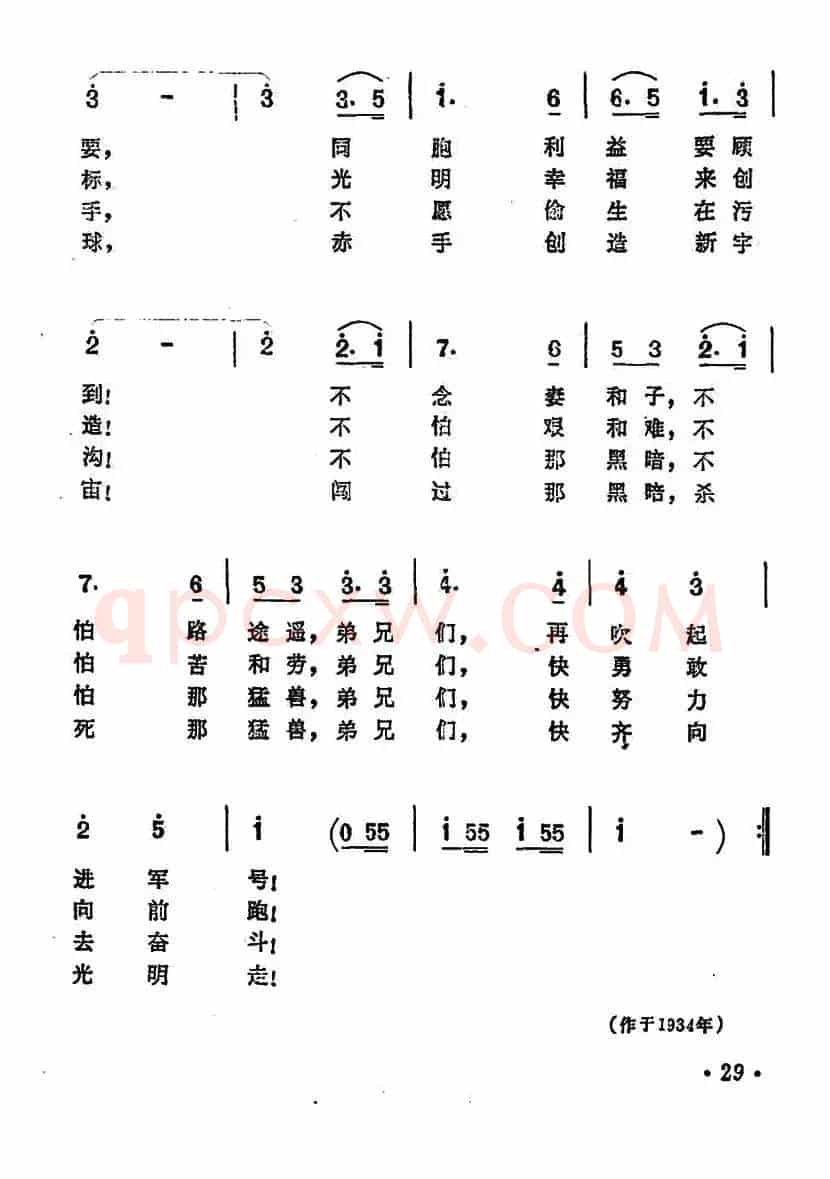 3 - 3 3. 5 | 1. 6 6. 5 | 1. 3 |
要， 同 胞 利 益 要 顾
标， 光 明 幸 福 来 创
手， 不 愿 偷 生 在 污
球， 赤 手 创 造 新 宇
2 - | 2 2. 1 | 7. 6 | 5 3 2. 1 |
到！ 不 念 妻 和 子，不
造！ 不 怕 艰 和 难，不
沟！ 不 怕 那 黑 暗，不
宙！ 闯 过 那 黑 暗，杀
7. 6 | 5 3 3. 3 | 4. 4 | 4 3 |
怕 路 途 遥，弟 兄 们， 再 吹 起
怕 苦 和 劳，弟 兄 们， 快 勇 敢
怕 那 猛 兽，弟 兄 们， 快 努 力
死 那 猛 兽，弟 兄 们， 快 齐 向
2 5 | 1 (0 55 | 1 55 1 55 | 1 -) :‖
进 军 号！
向 前 跑！
去 奋 斗！
光 明 走！
(作于1934年)
·29·
qpcxw.com